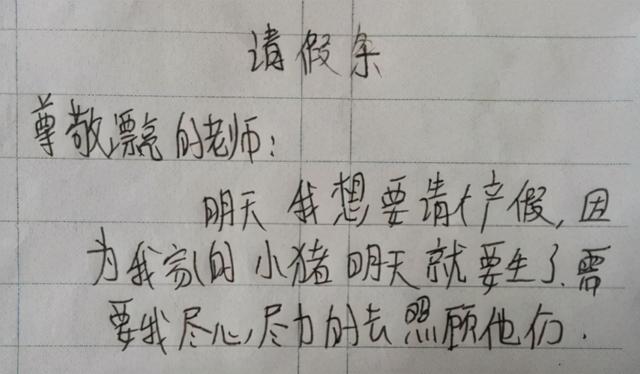 请假条
尊敬漂亮的老师:
明天我想要请产假,因
为我家的小猪明天就要生了、需
要我尽心尽力的去照顾他们.